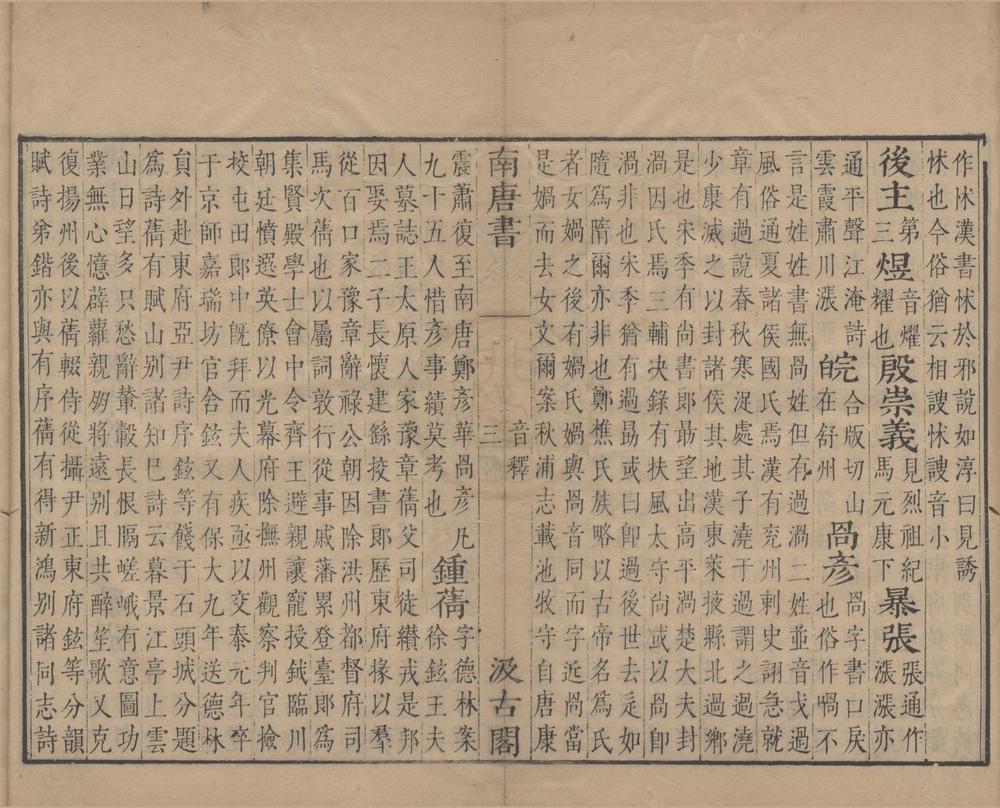 作怵漢書怵於邪說如淳曰見誘
怵也今俗猶云相謏怵謏音小
後主
第
三
煜
音燿
燿也
殷崇義
見烈祖紀
馬元康下
暴張
張通作
漲漲亦
通平聲江淹詩
雲霞肅川漲
皖
合版切山
在舒州
咼彥
咼字書口戾
也俗作喎不
言是姓書無咼姓但有過渦二姓並音戈過
風俗通夏諸侯國氏焉漢有兗州刺史詡急就
章有過說春秋寒浞處其子澆于過謂之過澆
少康滅之以封諸侯其地漢東萊掖縣北過鄉
是也宋季有尚書郎勗望出高平渦楚大夫封
渦因氏焉三輔决錄有扶風太守尙或以咼卽
渦非也宋季猶有過勗或曰卽過後世去辵如
隨爲隋爾亦非也鄭樵氏族略以古帝名爲氏
者女媧之後有媧氏媧與咼音同而字近咼當
是媧而去女文爾案秋浦志載池牧守自唐康
南唐書 音釋 三 汲古閣
震蕭復至南唐鄭彥華咼彥凡
九十五人惜彥事績莫考也
鍾蒨
字德林案
徐鉉王夫
人墓誌王太原人家豫章蒨父司徒纉戎是邦
因娶焉二子長懷建繇挍書郎歷東府掾以羣
從百口家豫章辭祿公朝因除洪州都督府司
馬次蒨也以屬詞敦行從事戚藩累登臺郎爲
集賢殿學士會中令齊王避親讓寵授鉞臨川
朝廷憤選英僚以光幕府除撫州觀察判官撿
挍屯田郎中旣拜而夫人疾亟以交泰元年卒
于京師嘉瑞坊官舍鉉又有保大九年送德林
員外赴東府亞尹詩序鉉等餞于石頭城分題
爲詩蒨有賦山别諸知巳詩云暮景江亭上雲
山日望多只愁辭輦轂長恨隔嵯峨有意圖功
業無心憶薜蘿親朋將遠别且共醉笙歌又克
復揚州後以蒨輟侍從攝尹正東府鉉等分韻
賦詩弟鍇亦與有序蒨有得新鴻别諸同志詩